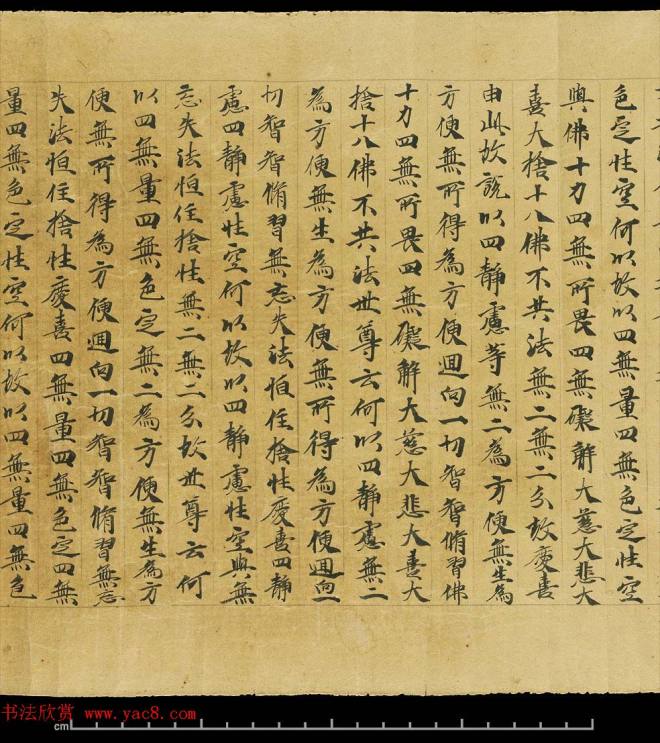 色定性空何以故以四無量四無色定性空
與佛十力四無所畏四無礙解大慈大悲大
喜大捨十八佛不共法無二無二分故慶喜
由此故説以四静慮等無二為方便無生為
方便無所得為方便迴向一切智智脩習佛
十力四無所畏四無礙解大慈大悲大喜大
捨十八佛不共法世尊云何以四静慮無二
為方便無生為方便無所得為方便迴向一
切智智脩習無忘失法恒住捨性慶喜四静
慮四静慮性空何以故以四静慮性空與無
忘失法恒住捨性無二無二分故世尊云何
以四無量四無色定無二為方便無生為方
便無所得為方便迴向一切智智脩習無忘
失法恒住捨性慶喜四無量四無色定四無
量四無色定性空何以故以四無量四無色
书法欣赏 www.yac8.com
cm